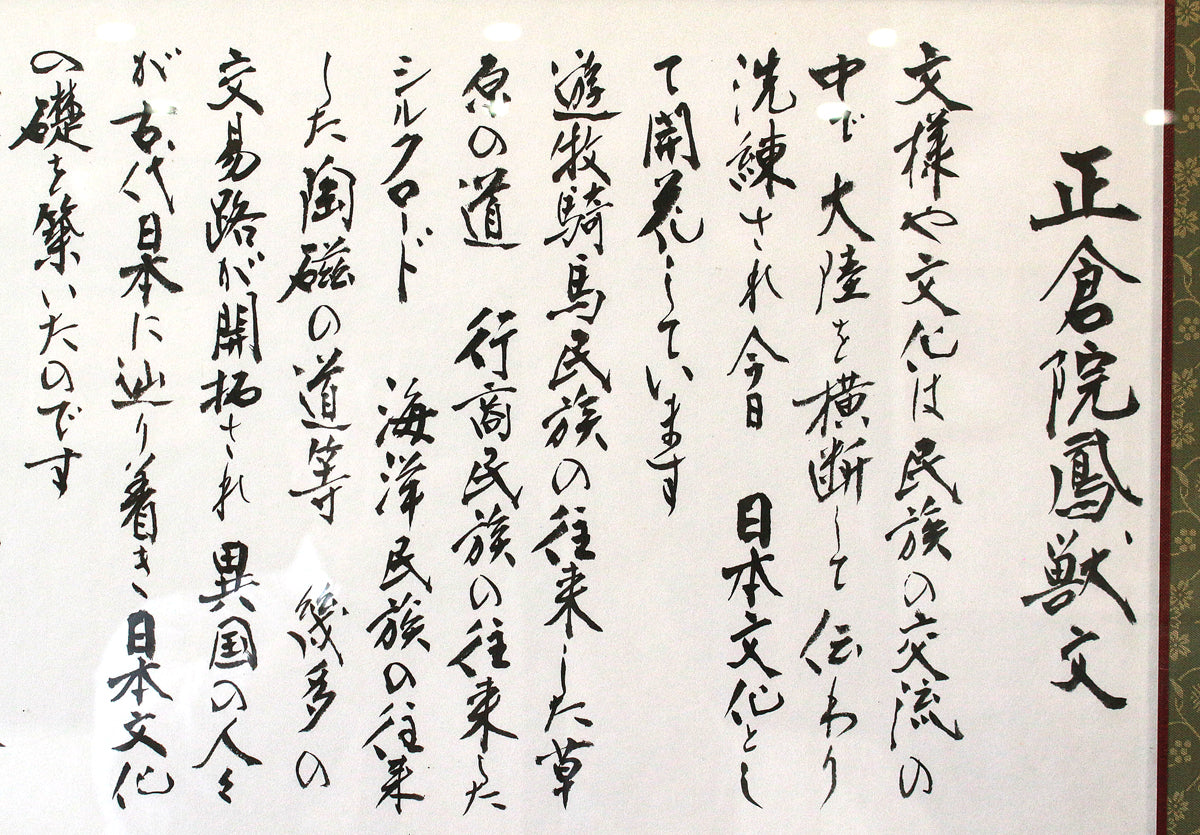 正倉院鳳獣文
文様や文化は民族の交流の
中で 大陸を横断して伝わり
洗練され今日 日本文化とし
て開花しています
遊牧騎馬民族の往来した草
原の道 行商民族の往来した
シルクロード 海洋民族の往来
した陶磁の道等 幾多の
交易路が開拓され 異国の人々
が古代日本に辿り着き 日本文化
の礎を築いたのです